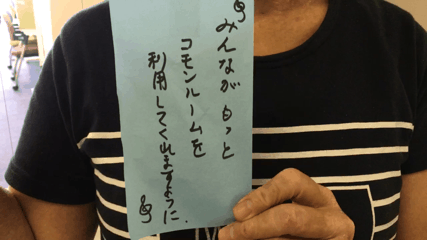 みんながもっと
コモンルームを
利用してくれますように、